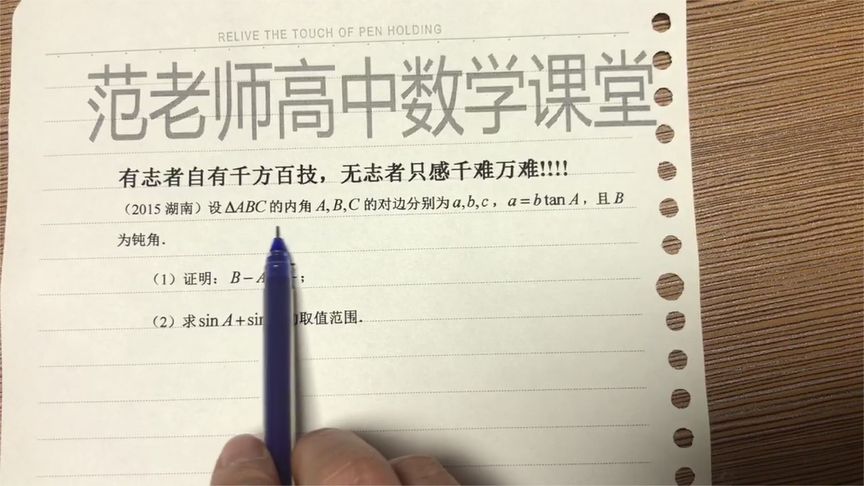 RELIVE THE TOUCH OF PEN HOLDING
范老师高中数学课堂
有志者自有千方百技，无志者只感千难万难!!!!
（2015 湖南）设 ΔABC 的内角 A,B,C 的对边分别为 a,b,c，a=b tan A，且 B
为钝角.
（1）证明：B－A ；
（2）求 sin A+sin 的取值范围.